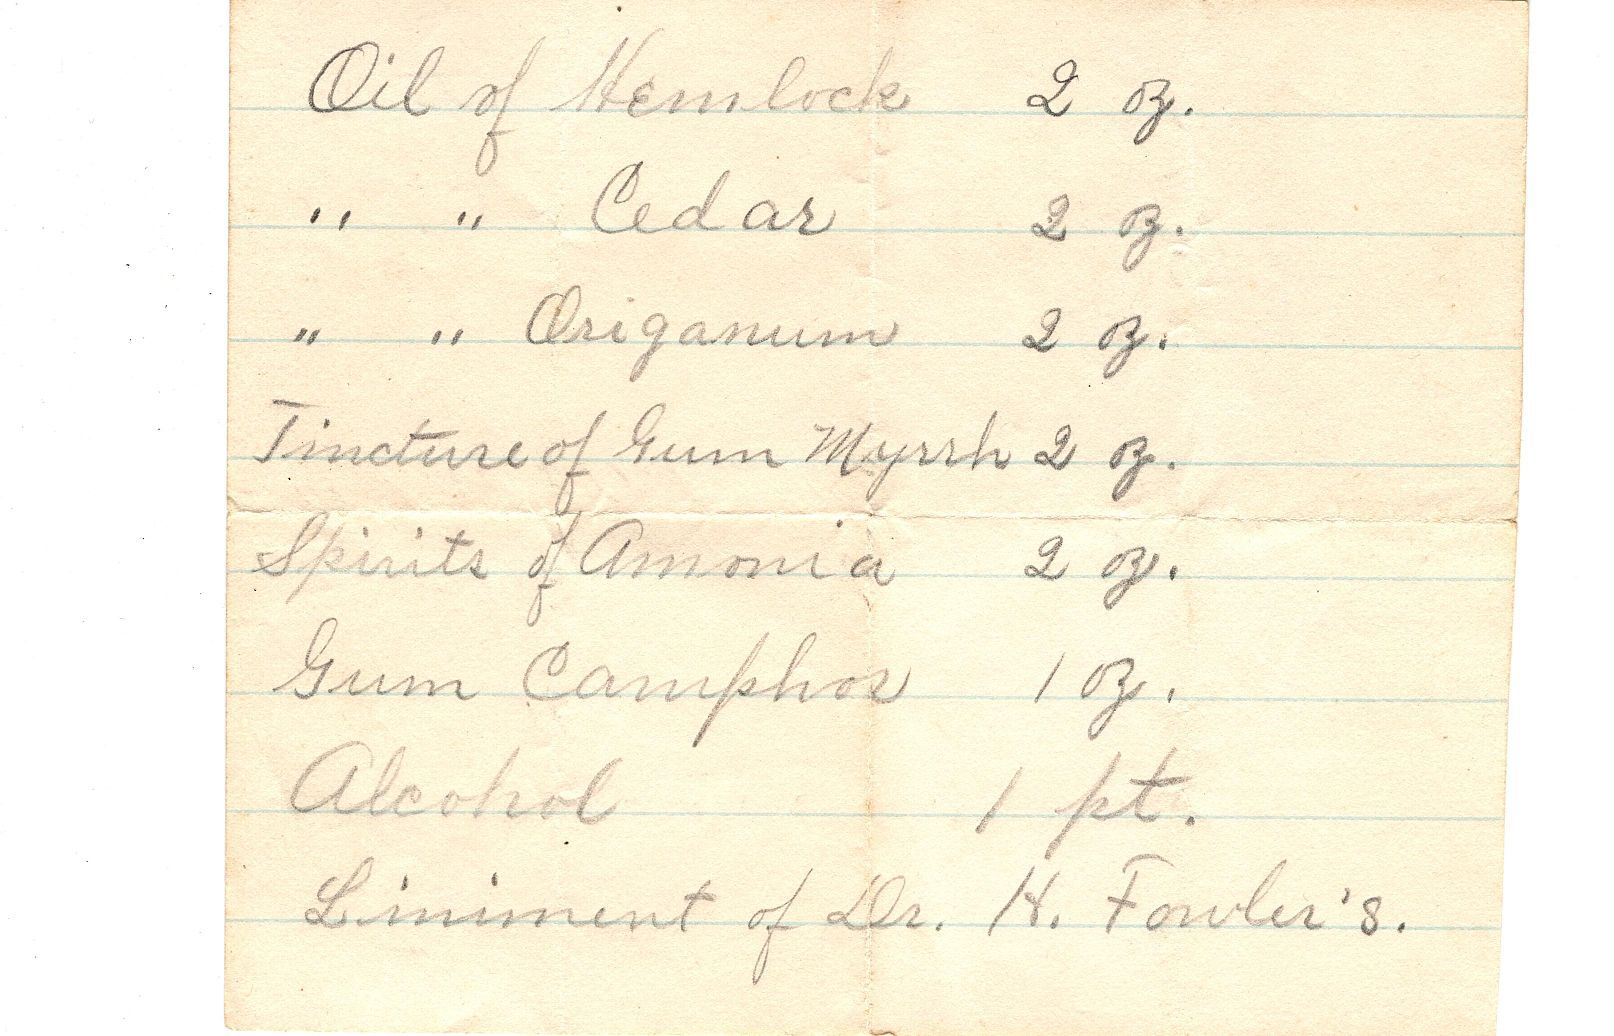 Oil of Hemlock 2 oz.
" " Cedar 2 oz.
" " Origanum 2 oz.
Tincture of Gum Myrrh 2 oz.
Spirits of Amonia 2 oz.
Gum Camphor 1 oz.
Alcohol 1 pt.
Liniment of Dr. H. Fowler's.